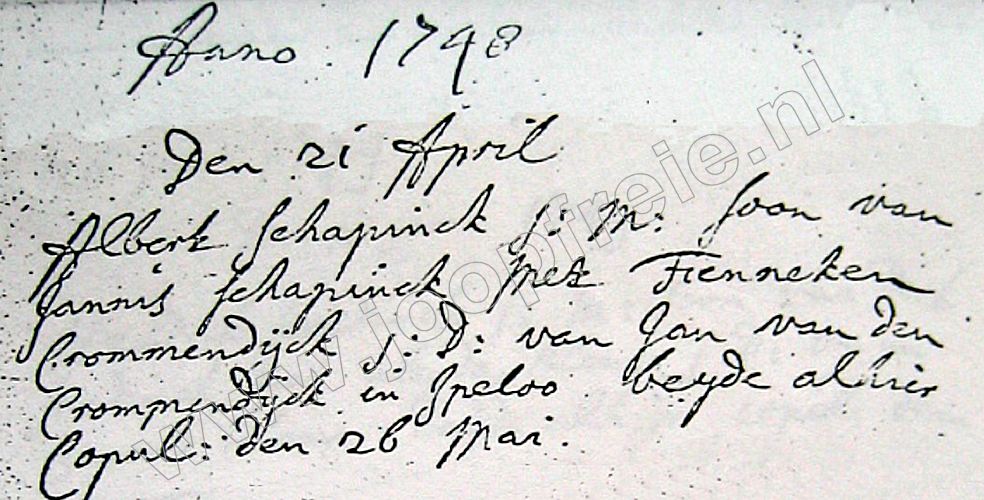 Anno 1748
Den 21 April
Albert Schapinck J: M: Soon van
Jannis Schapinck Met Fenneken
Crommendijck J: D: van Jan van den
Crommendijck in Ypeloo beyde alhier
Copul: den 26 Mai.
www.joopfreie.nl